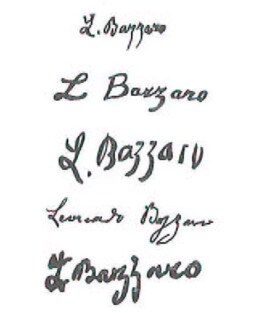 L. Bazzaro
L Bazzaro
L. Bazzaro
Leonardo Bazzaro
L Bazzaro